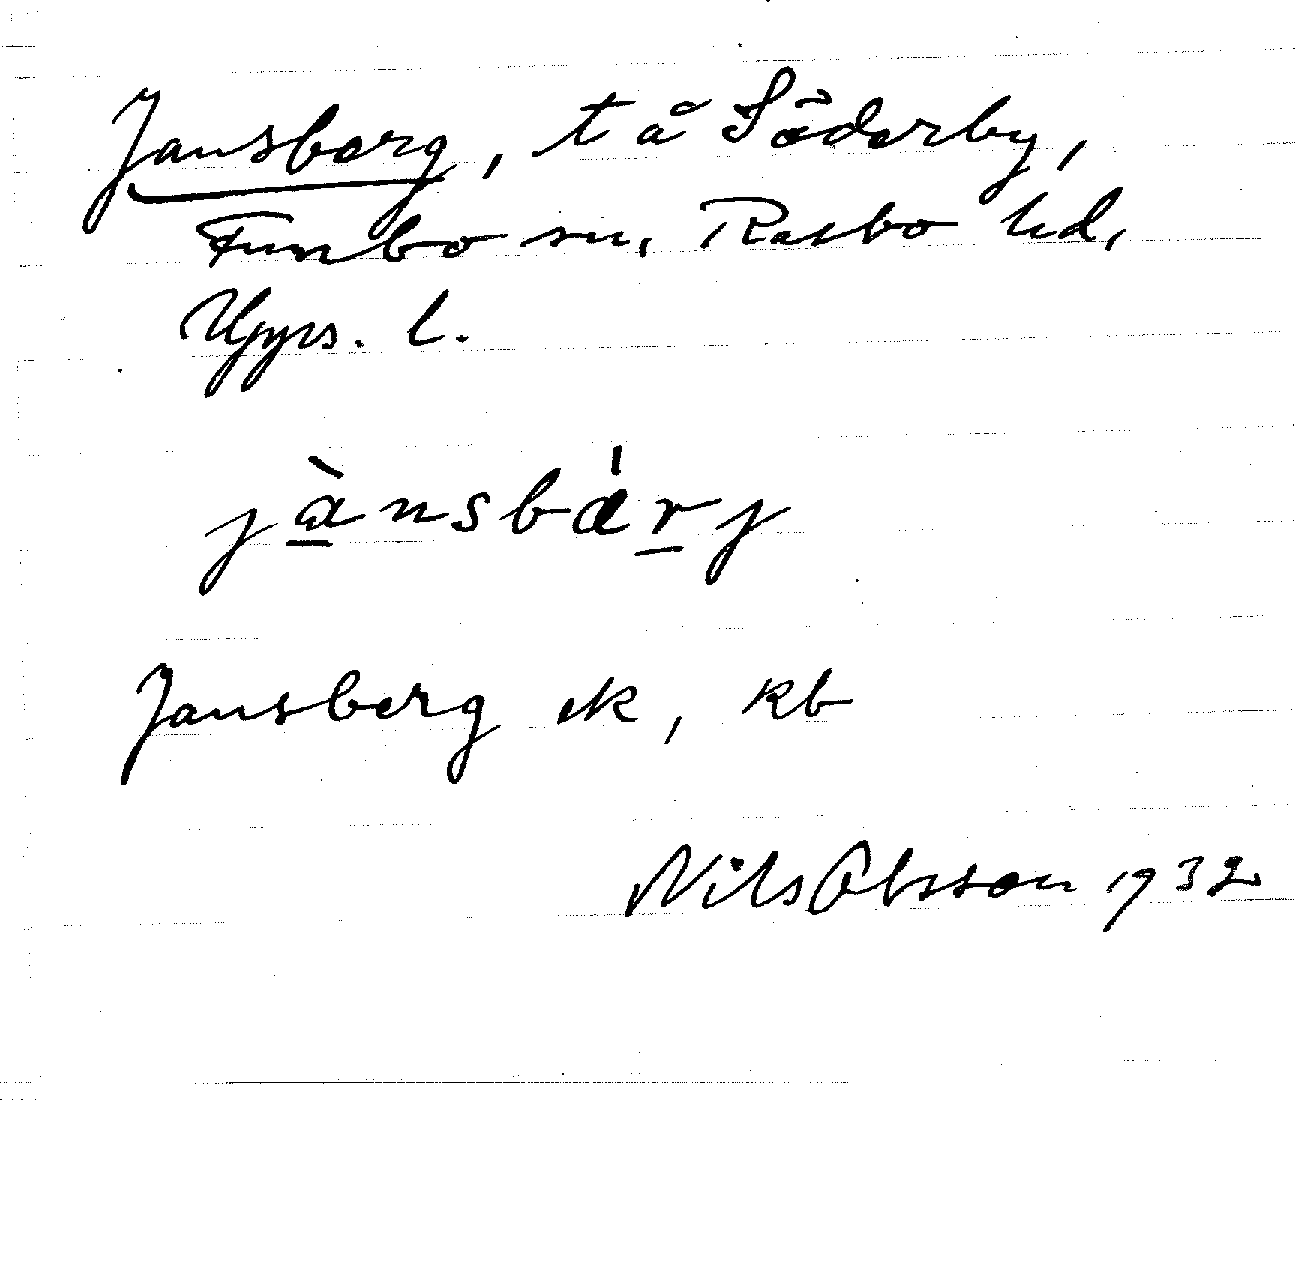 Jansberg, t å Söderby,
Funbo sn, Rasbo hd,
Upps. l.
jànsbárj
Jansberg ek, kb
Nils Olsson 1932